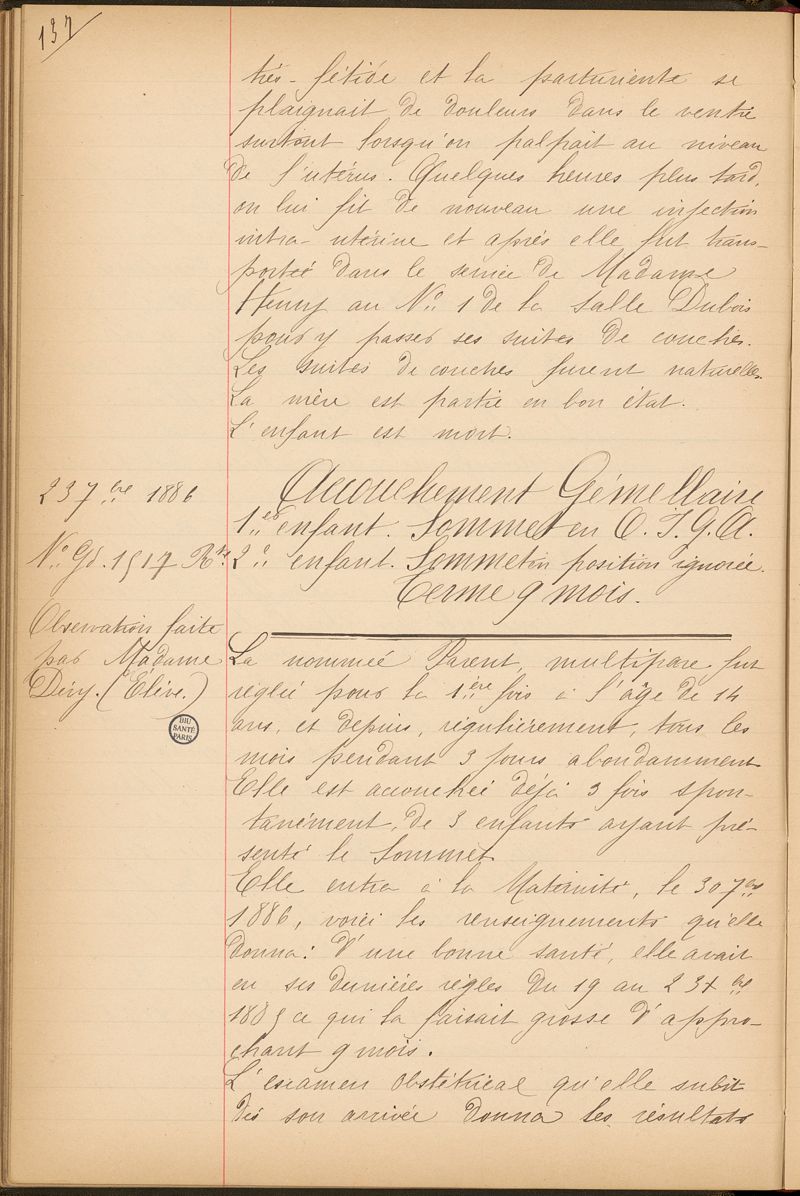 137
très-fétide et la parturiente se
plaignait de douleurs dans le ventre
surtout lorsqu'on palpait au niveau
de l'utérus. Quelques heures plus tard,
on lui fit de nouveau une injection
intra-utérine et après elle fut trans-
portée dans le service de Madame
Henry au N° 1 de la salle Dubois
pour y passer ses suites de couches.
Les suites de couches furent naturelles.
La mère est partie en bon état.
L'enfant est mort.
23 7bre 1886
Accouchement Gémellaire
1er enfant. Sommet en O.I.G.A.
N° Gd. 1517 Rte
2e enfant. Sommet en position ignorée.
Terme 9 mois.
Observation faite
par Madame
Déry. (Élève.)
BIU
SANTÉ
PARIS
La nommée Parent, multipare fut
réglée pour la 1ère fois à l'âge de 14
ans, et depuis, régulièrement, tous les
mois pendant 3 jours abondamment
Elle est accouchée déjà 3 fois spon-
tanément, de 3 enfants ayant pré-
senté le Sommet
Elle entra à la Maternité, le 30 7bre
1886, voici les renseignements qu'elle
donna: d'une bonne santé, elle avait
eu ses dernières règles du 19 au 23 Xbre
1885 ce qui la faisait grosse d'appro-
chant 9 mois.
L'examen obstétrical qu'elle subit
dès son arrivée donna les résultats